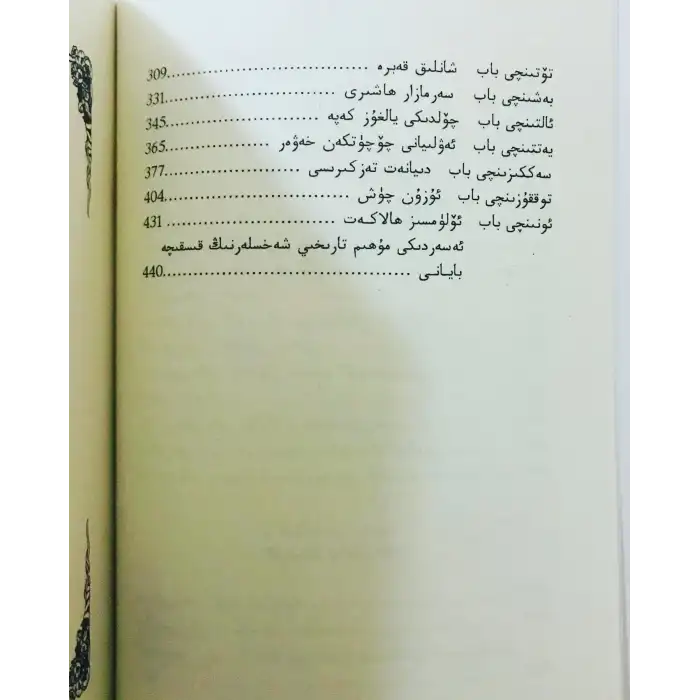 تۆتىنچى باب شانلىق قەبرە ........................................ 309
بەشىنچى باب سەرمازار ھاشىرى ........................................ 331
ئالتىنچى باب چۆلدىكى يالغۇز كەپە ........................................ 345
يەتتىنچى باب ئەۋلىيانى چۆچۈتكەن خەۋەر ........................................ 365
سەككىزىنچى باب دىيانەت تەزكىرىسى ........................................ 377
توققۇزىنچى باب ئۇزۇن چۈش ........................................ 404
ئونىنچى باب ئۆلۈمسىز ھالاكەت ........................................ 431
ئەسەردىكى مۇھىم تارىخىي شەخسلەرنىڭ قىسقىچە
بايانى ........................................ 440